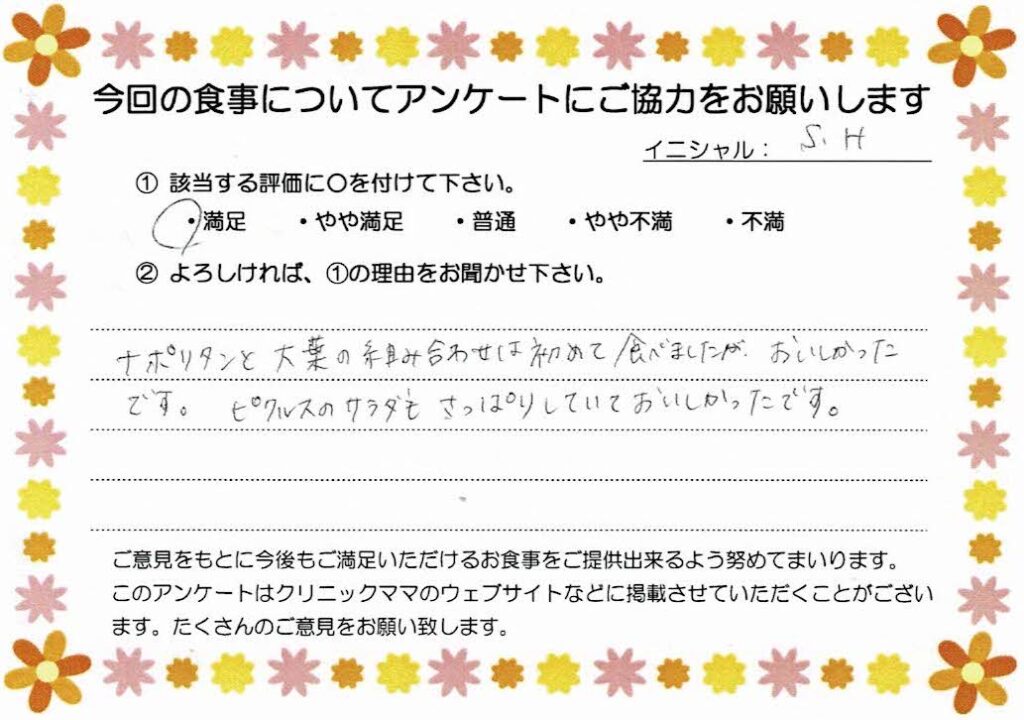 今回の食事についてアンケートにご協力をお願いします
イニシャル： S. H
① 該当する評価に〇を付けて下さい。
・満足 ・やや満足 ・普通 ・やや不満 ・不満
② よろしければ、①の理由をお聞かせ下さい。
ナポリタンと大葉の組み合わせは初めて食べましたが、おいしかった
です。 ピクルスのサラダもさっぱりしていておいしかったです。
ご意見をもとに今後もご満足いただけるお食事をご提供出来るよう努めてまいります。
このアンケートはクリニックママのウェブサイトなどに掲載させていただくことがござい
ます。たくさんのご意見をお願い致します。